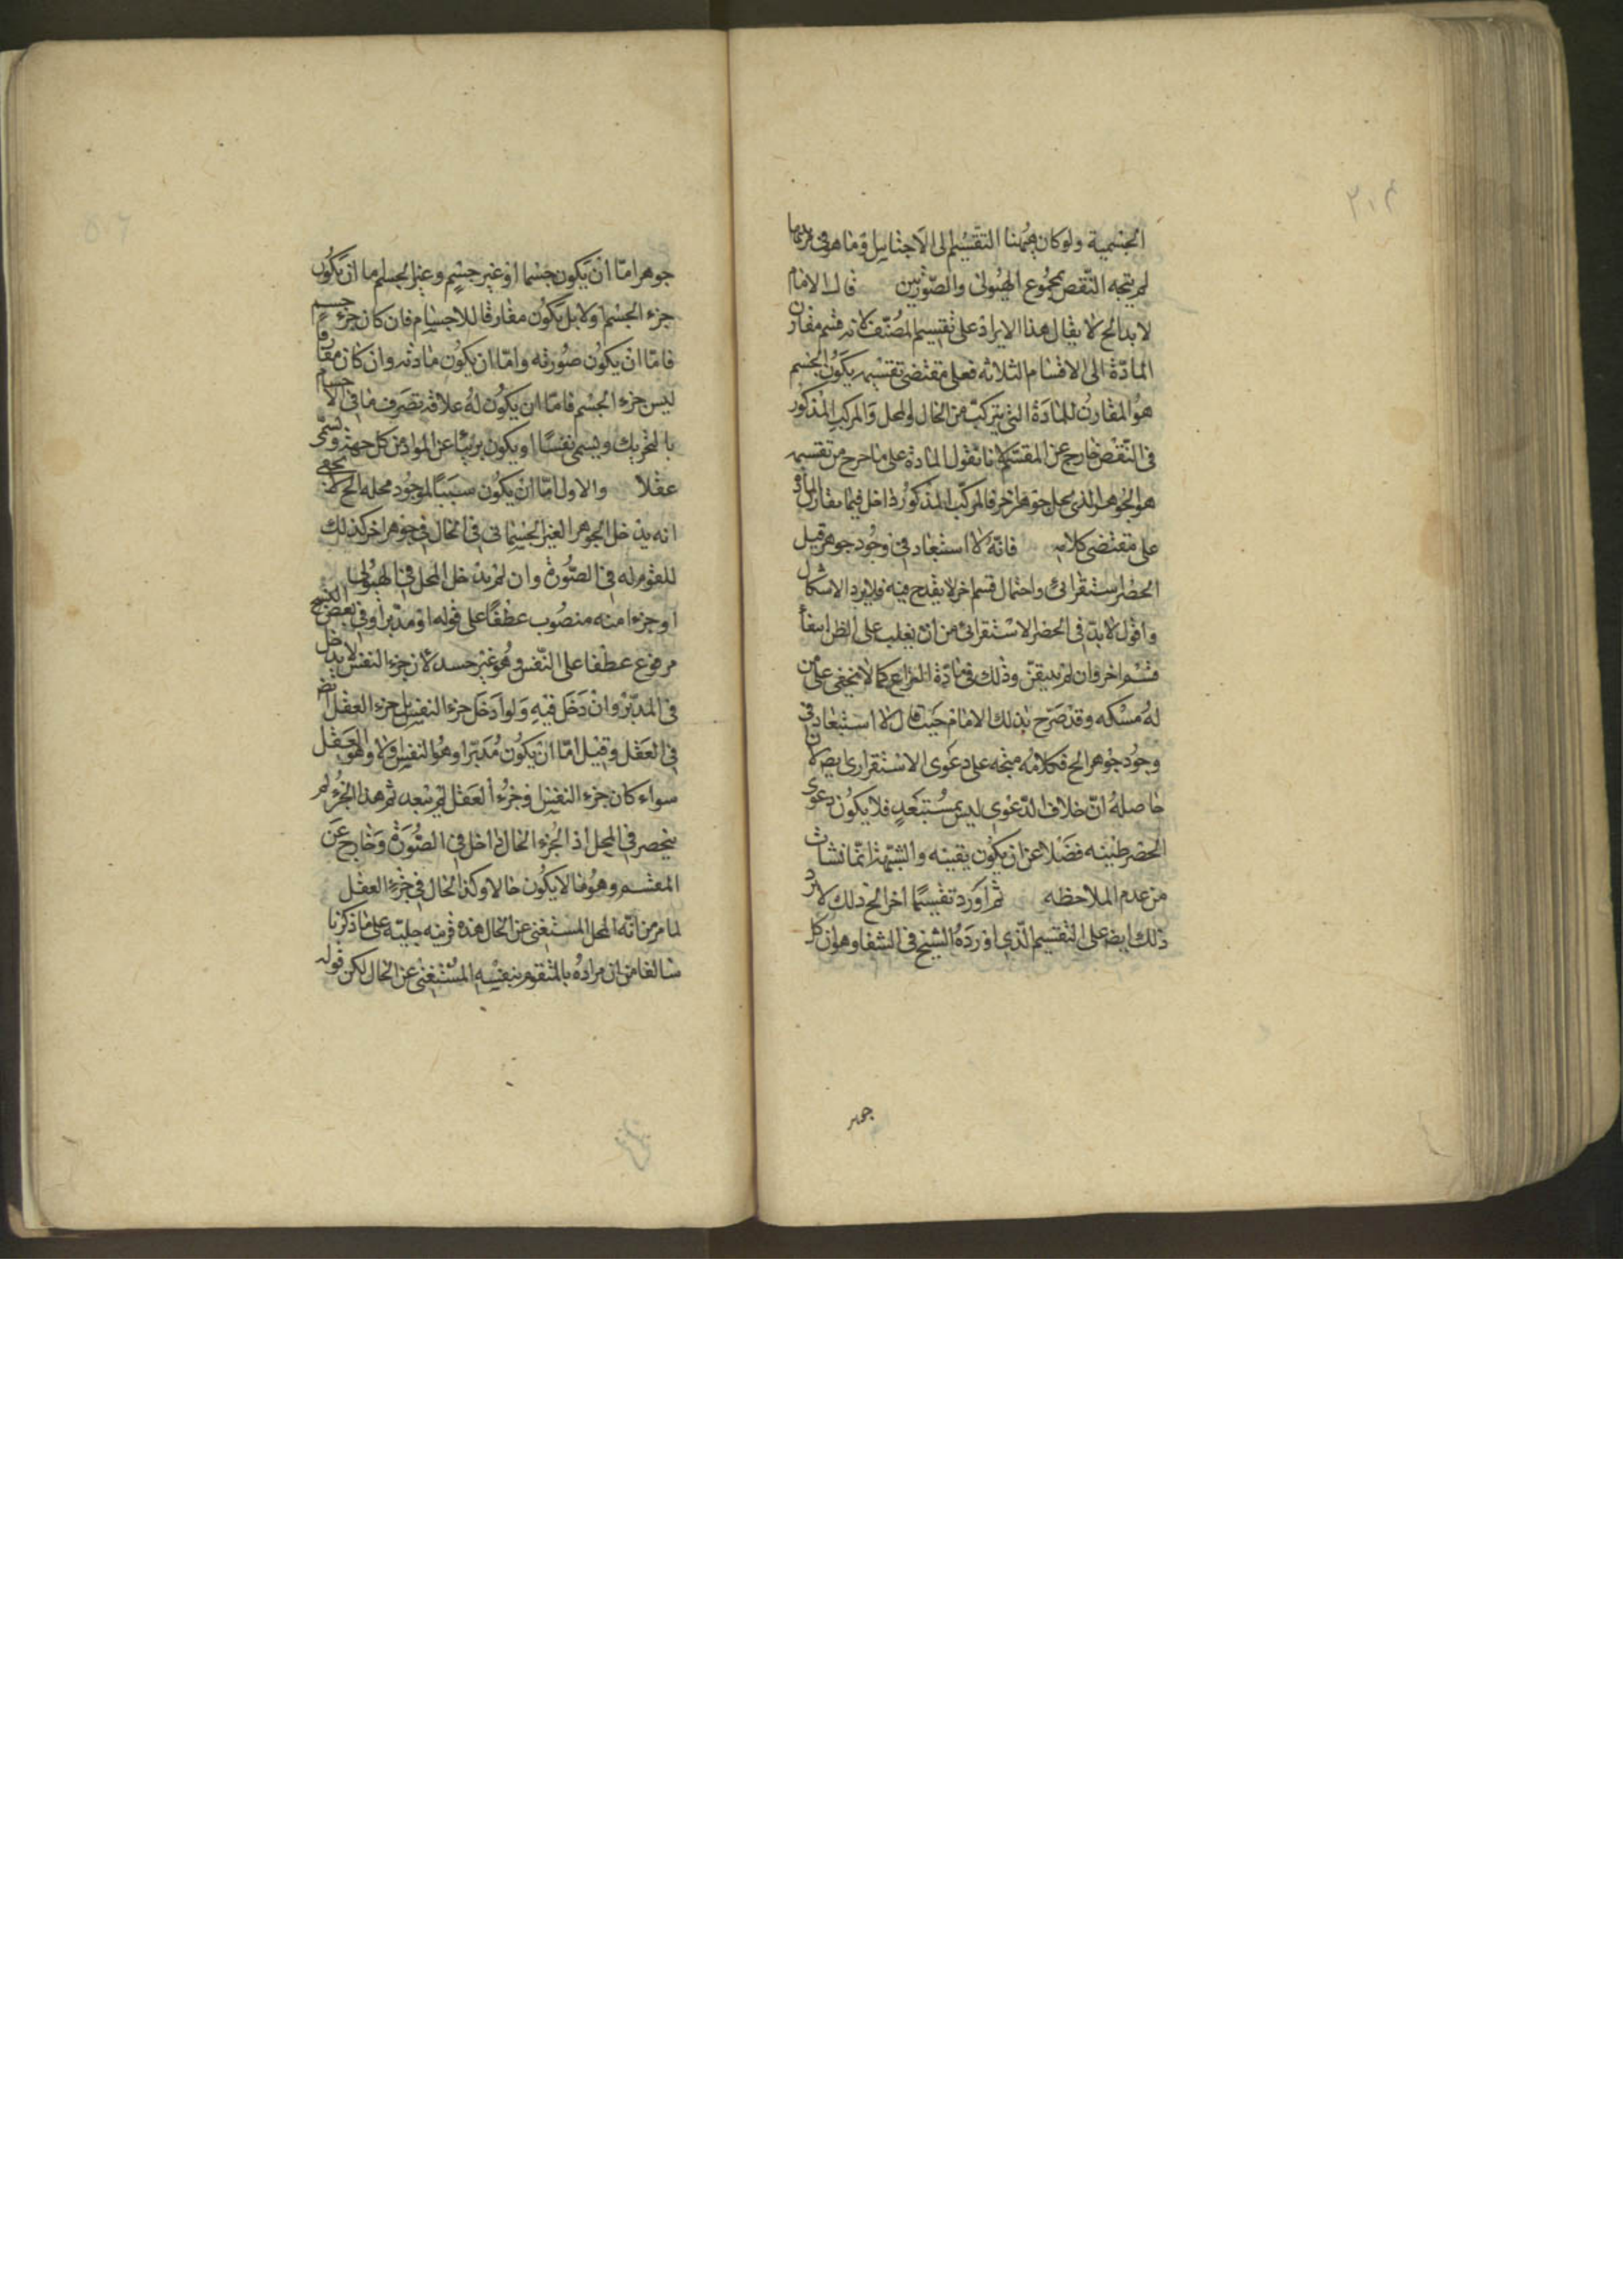 الجسمية ولو كان ههنا التقسيم الى الاجناس وما هو فى مرتبتها
لم يتجه النقص بمجموع الهيولى والصورتين قال الامام
لا بد الخ لا يقال هذا الايراد على تقسيم المصنف لانه قسم مقارن
المادة الى الاقسام الثلاثة فعلى مقتضى تقسيمه يكون الجسم
هو المقارن للمادة التى يتركب من الحال والمحل والمركب المذكور
فى النقض خارج عن المقسم لانا نقول المادة على ما خرج من تقسيمه
هو الجوهر الذى يحل جوهر اخر فالمركب المذكور داخل فيما يقارن المادة
على مقتضى كلامه فانه لا استبعاد فى وجود جوهر قيل
الحصر استقرائى واحتمال قسم اخر لا يقدح فيه فلا يرد الاشكال
واقول لا بد فى الحصر الاستقرائى من ان يغلب على الظن انتفاء
قسم اخر وان لم يتيقن وذلك فى مادة النزاع كما لا يخفى على من
له مسكه وقد صرح بذلك الامام حيث قال لا استبعاد فى
وجود جوهر الخ فكلامه متجه على دعوى الاستقرارى ايض لان
حاصله ان خلاف الدعوى ليس بمستبعد فلا يكون دعوى
الحصر ظنيه فضلا عن ان يكون يقينه والشبهة انما نشات
من عدم الملاحظه ثم اورد تقسيما اخر الخ ذلك لا يرد
ذلك ايض على التقسيم الذى اورده الشيخ فى الشفا وهو ان كل
جوهر
جوهر اما ان يكون جسما او غير جسم وغير الجسم اما ان يكون
جزء الجسم او لا بل يكون مفارقا للاجسام فان كان جزء جسم
فاما ان يكون صورته واما ان يكون مادته وان كان مفارقا
ليس جزء الجسم فاما ان يكون له علاقة تصرف ما فى الاجسام
بالتحريك ويسمى نفسا او يكون بريئا عن المواد من كل جهة ويسمى
عقلا والاول اما ان يكون سببا لوجود محله الخ لا يخفى
انه يدخل الجوهر الغير الجسمانى فى الحال فى جوهر اخر كذلك
للمقوم له فى الصورة وان لم يدخل المحل فى الهيولى
او جزءا منه منصوب عطفا على قوله او مدبرا وفى بعض النسخ
مرفوع عطفا على النفس وهو غير جسد لان جزء النفس لا يدخل
فى المدبر وان دخل فيه ولو ادخل جزء النفس بل جزء العقل ايض
فى العقل وقيل اما ان يكون مدبرا وهو النفس او لا وهو العقل
سواء كان جزء النفس او جزء العقل لم يبعد ثم هذا الجزء لم
ينحصر فى المحل اذ الجزء الحال داخل فى الصورة وخارج عن
المقسم وهو ما لا يكون حالا وكذا الحال فى جزء العقل
لما مر من انه المحل المستغنى عن الحال هذه قرينه جليه على ما ذكرنا
سالفا من ان مراده بالمتقوم بنفسه المستغنى عن الحال لكن قوله